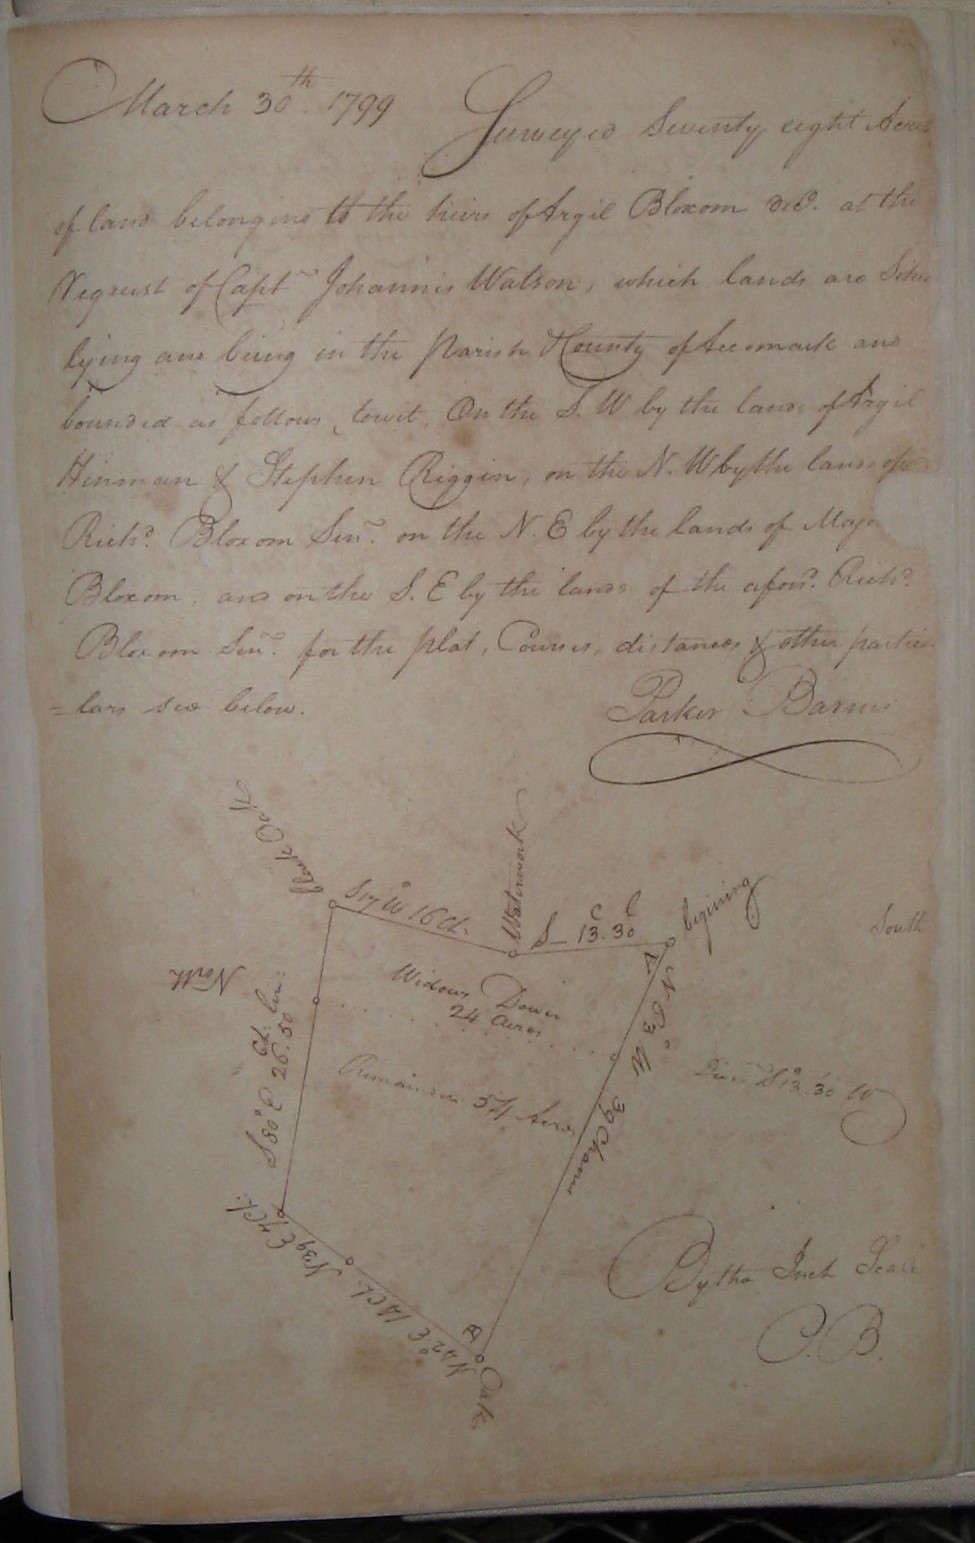 March 30th 1799 Surveyed Seventy eight Acres
of land belonging to the heirs of Argil Bloxom decd. at the
Request of Capt. Johannis Watson, which lands are Situ
lying and being in the Parish & County of Accomack and
bounded as follows, towit. On the S. W by the lands of Argil
Hinman & Stephen Riggin, on the N. W by the lands of
Richd. Bloxom Senr. on the N. E by the lands of Majr
Bloxom, and on the S. E by the lands of the afosd. Richd.
Bloxom Senr. for the plat, Courses, distances & other particu
=lars see below.
Parker Barnes
black Oak
S17°W 16 Ch.
Waterwork
S– 13C.30L
begining
South
North
A
Widows Dower
24 Acres
N 63°W 39 Chains
Remainder 54 Acres
S 13°.30 W
S80°E 26Ch.50 lin.
N39 E 4 Ch.
N42°E 14 Ch.
B
Oak
By the Inch Scale
P. B.